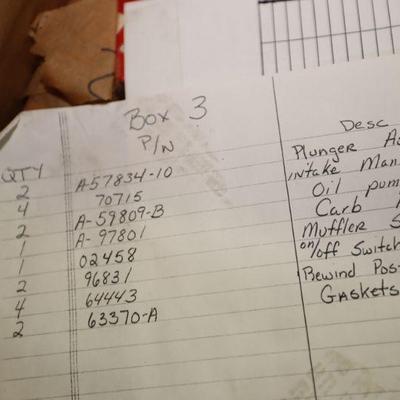 Box 3
QTY P/N Desc
2 A-57834-10 Plunger
4 70715 intake
2 A-59809-B Oil
1 A-97801 Carb
1 02458 Muffler
2 96831 on/off Switch
4 64443 Rewind
2 63370-A Gaskets